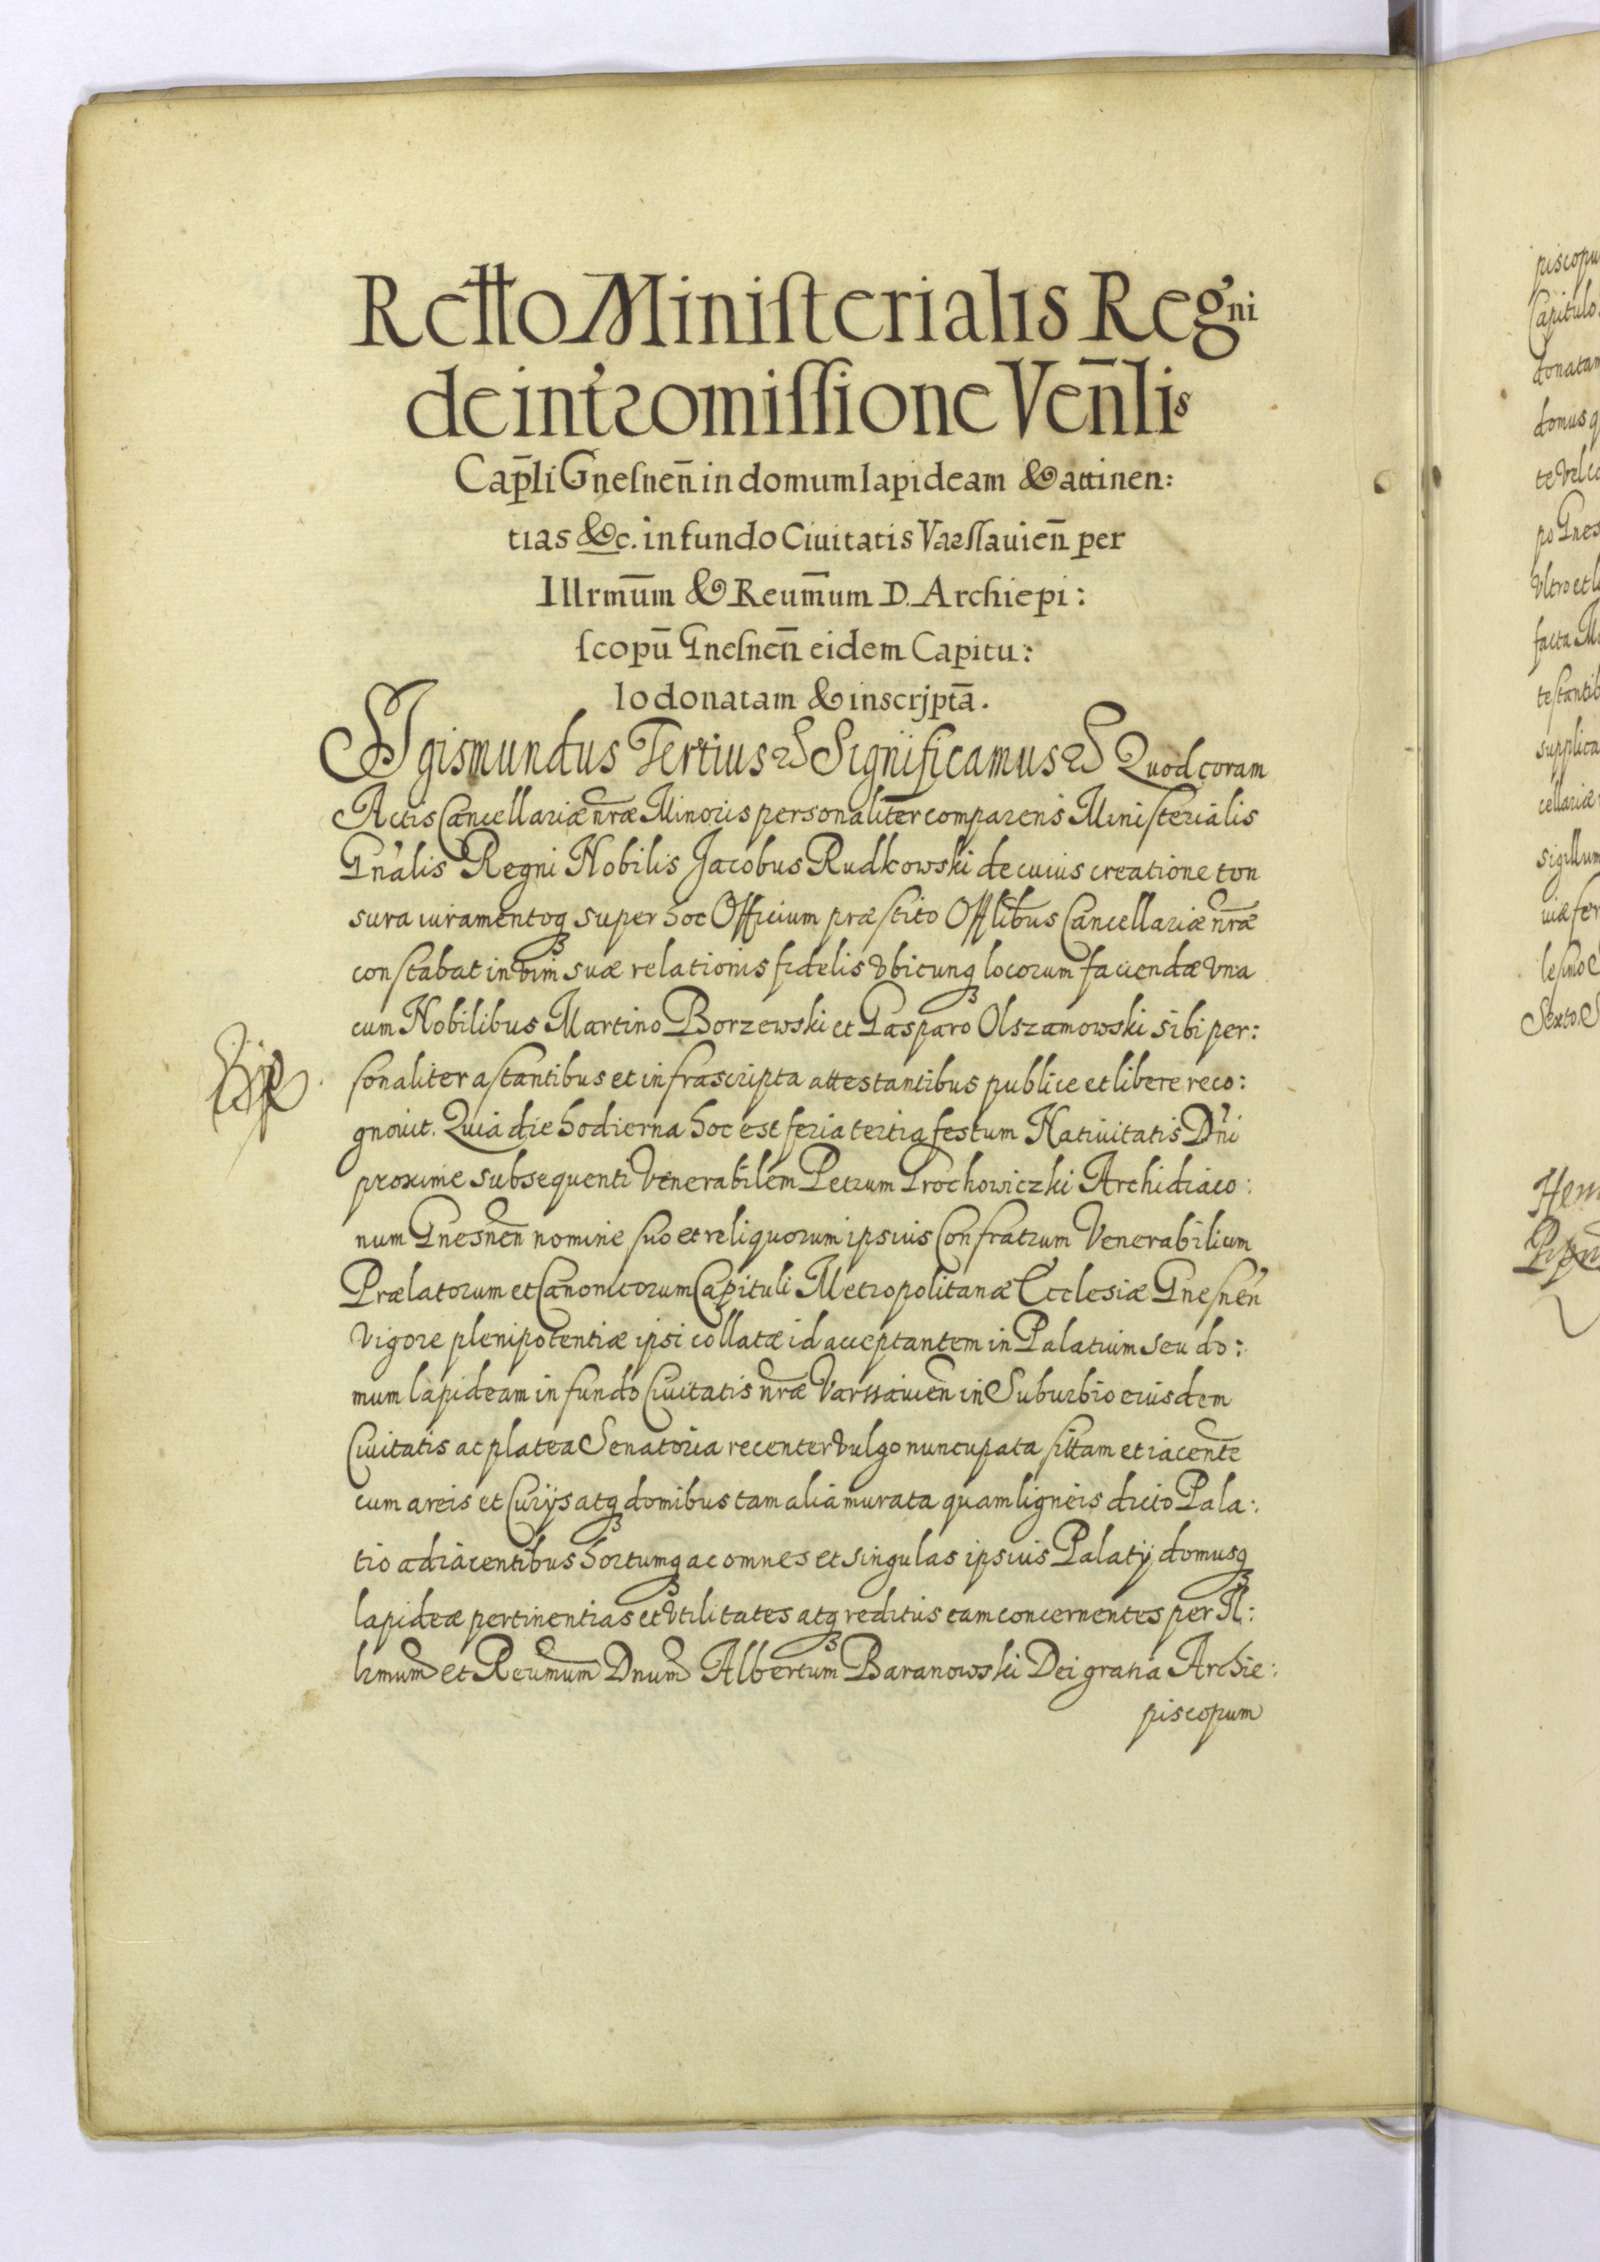 Retto Ministerialis Regni
de intromissione Venlis
Capli Gnesnen in domum lapideam & attinen:
tias &c. in fundo Ciuitatis Varssauien per
Illrmum & Reumum D. Archiepi:
scopū Gnesnen eidem Capitu:
lo donatam & inscrjptā.
Sigismundus Tertius &c Significamus &c Quod coram
Actis Cancellariæ nræ Minoris personaliter comparens Ministerialis
Gnalis Regni Nobilis Jacobus Rudkowski de cuius creatione ton
sura iuramentoq3 super hoc Officium præstito Offlibus Cancellariæ nræ
constabat in vim suæ relationis fidelis vbicunq3 locorum faciendæ vna
cum Nobilibus Martino Borzewski et Gasparo Olszamowski sibi per:
sonaliter astantibus et infrascripta attestantibus publice et libere reco:
gnouit. Quia die hodierna hoc est feria tertia festum Natiuitatis Dni
proxime subsequenti Venerabilem Petrum Grochowiczki Archidiaco:
num Gnesnen nomine suo et reliquorum ipsius Confratrum Venerabilium
Prælatorum et Canonicorum Capituli Metropolitanæ Ecclesiæ Gnesnen
vigore plenipotentiæ ipsi collatæ id acceptantem in Palatium seu do:
mum lapideam in fundo Ciuitatis nræ Varssauien in Suburbio eiusdem
Ciuitatis ac platea Senatoria recenter vulgo nuncupata sittam et iacente
cum areis et Curijs atq3 domibus tam alia murata quam ligneis dicto Pala:
tio adiacentibus hortumq3 ac omnes et singulas ipsius Palatij domusq3
lapideæ pertinentias et vtilitates atq3 reditus eam concernentes per Il:
lrmum et Reumum Dnum Albertum Baranowski Dei gratia Archie:
piscopum
piscopu
Capitulo
donatam
domus q
te vel co
po Gnes
vltro et l
facta M
testantib
supplica
cellariæ
sigillum
uiæ fer
lesmo
Sexto S